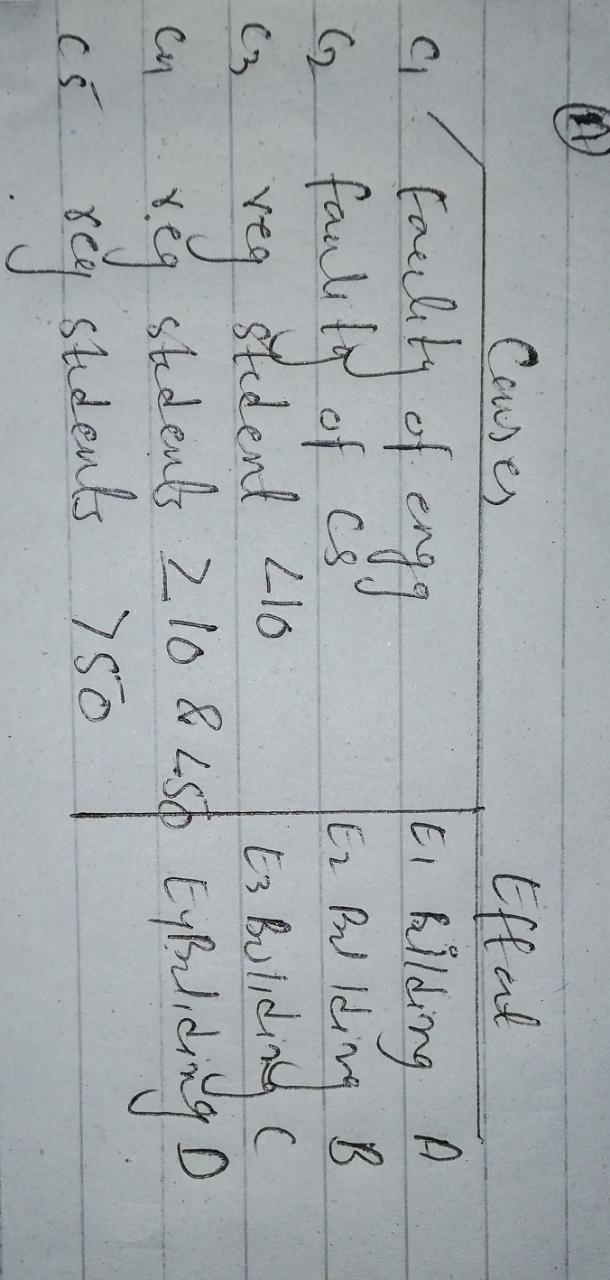 A
Causes Effect
C1 faculity of engg E1 Building A
C2 faulity of CS E2 Building B
C3 reg student <10 E3 Buliding C
C4 reg students ≥10 & <50 E4 Buliding D
C5 reg students >50